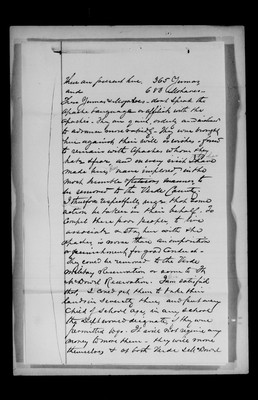 There are present here 365 Yumas
and 688 Mohaves -
These Yumas & Mojaves - don't speak the
Apache language or affiliate with the
Apaches - They are quiet, orderly and anxious
to advance more rapidly - They were brought
here against their will & wishes - forced
to remain with Apaches whom they
hate & fear, and on every visit I have
made here, have implored in the
most humble & piteous manner to
be removed to the Verde Country.
I therefore respectfully urge that some
action be taken in their behalf. To
compel these poor people to live
associate & stay here with the
Apaches is worse than an imposition
or punishment for good conduct.
They could be removed to the Verde
Military Reservation or some to Ft.
McDowell Reservation. I am satisfied
that I could get them to take their
lands in severalty there, and put every
child of school age in any school
the Dept would designate, if they were
permitted to go. It will not require any
money to move them - they will move
themselves & as both Verde & McDowell